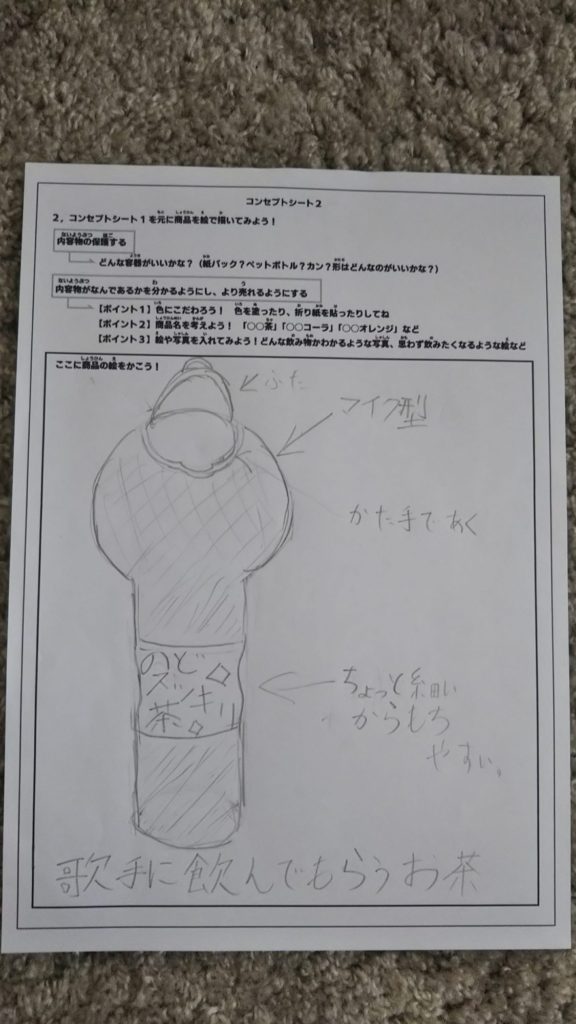 コンセプトシート2
2，コンセプトシート1を元に商品を絵で描いてみよう！
内容物の保護する
どんな容器がいいかな？（紙パック？ペットボトル？カン？形はどんなのがいいかな？）
内容物がなんであるかを分かるようにし、より売れるようにする
【ポイント1】色にこだわろう！　色を塗ったり、折り紙を貼ったりしてね
【ポイント2】商品名を考えよう！「○○茶」「○○コーラ」「○○オレンジ」など
【ポイント3】絵や写真を入れてみよう！どんな飲み物かわかるような写真、思わず飲みたくなるような絵など
ここに商品の絵をかこう！
ふた
マイク型
かた手であく
のど
ズッキリ
茶
ちょっと細い
からもち
やすい。
歌手に飲んでもらうお茶